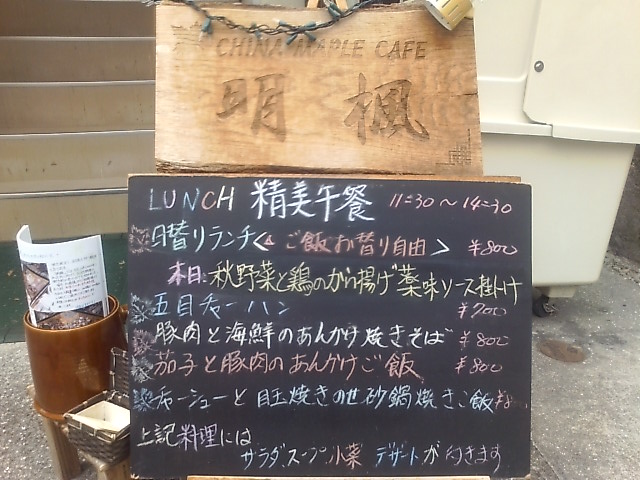 CHINA MAPLE CAFE
明楓
LUNCH 精美午餐 11:30～14:30
日替りランチ< ご飯お替り自由 > ¥800
本日:秋野菜と鶏のから揚げ薬味ソース掛け
五目チャーハン ¥700
豚肉と海鮮のあんかけ焼きそば ¥800
茄子と豚肉のあんかけご飯 ¥800
チャーシューと目玉焼きのせ砂鍋焼きご飯
上記料理には
サラダ、スープ、小菜 デザートが付きます